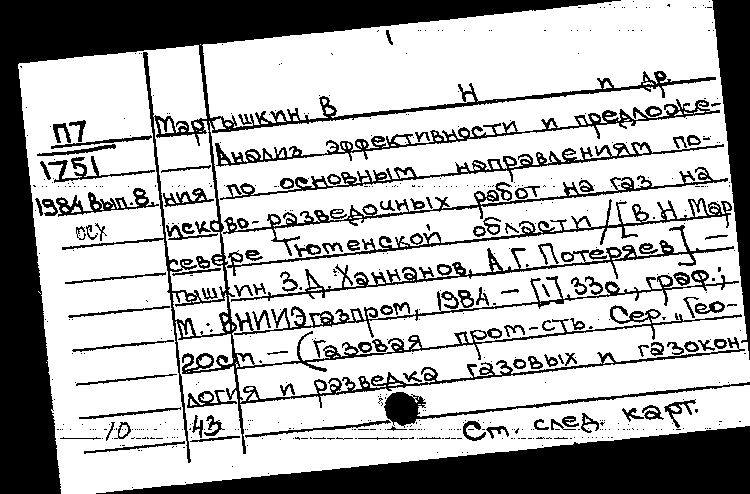 П7
1751
1984 вып.8.
осх
Мартышкин, В Н и др.
Анализ эффективности и предложе-
ния по основным направлениям по-
исково-разведочных работ на газ на
севере Тюменской области / [В.Н. Мар
тышкин, З.Д. Ханнанов, А.Г. Потеряев]. —
М.: ВНИИЭгазпром, 1984. — [1], 33с., граф.;
20см. — (Газовая пром-сть. Сер. „Гео-
логия и разведка газовых и газокон-
10 43
См. след. карт.